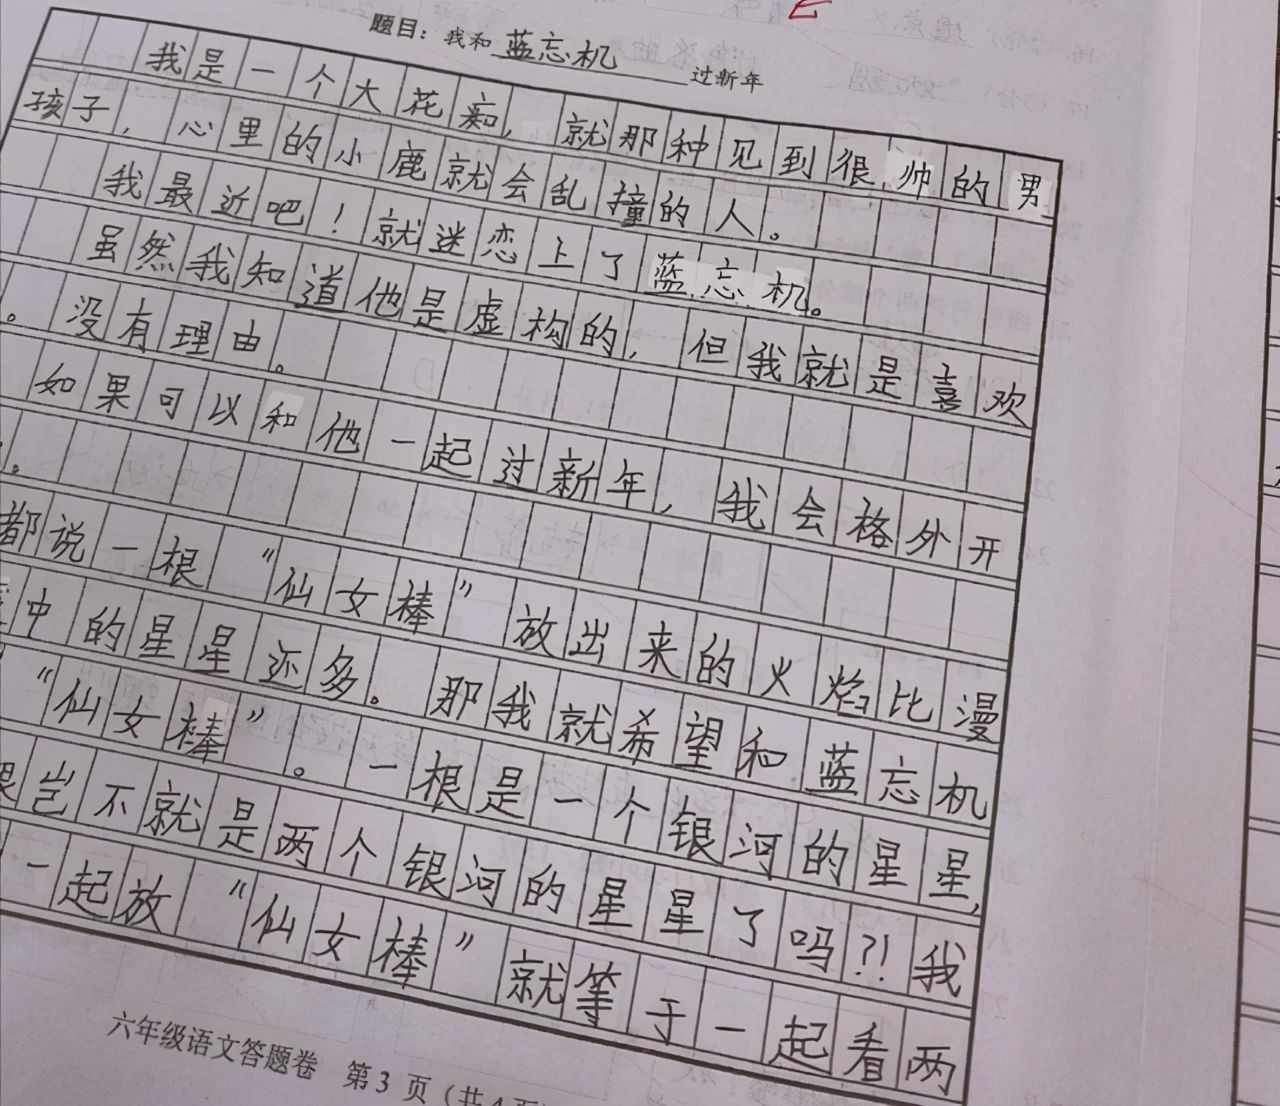 题目：我和蓝忘机过新年
我是一个大花痴，就那种见到很帅的男
孩子，心里的小鹿就会乱撞的人。
我最近吧！就迷恋上了蓝忘机。
虽然我知道他是虚构的，但我就是喜欢
。没有理由。
如果可以和他一起过新年，我会格外开
。
都说一根“仙女棒”放出来的火焰比漫
中的星星还多。那我就希望和蓝忘机
“仙女棒”。一根是一个银河的星星，
岂不就是两个银河的星星了吗?!我
一起放“仙女棒”就等于一起看两
六年级语文答题卷 第3页（共4页